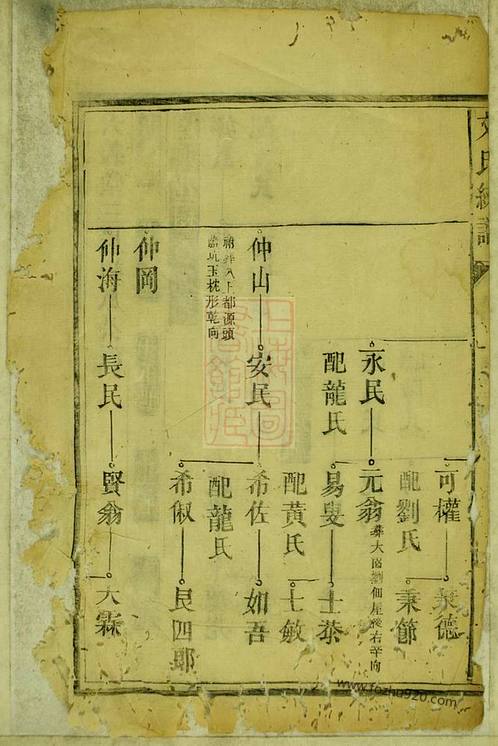 氏
可權
秉德
配劉氏
秉節
永民
元翁
葬大
屋後右辛向
配龍氏
易叟
士恭
配黃氏
士敏
仲山
安民
希佐
如吾
祔葬八上都源頭
坑玉枕形乾向
配龍氏
希俶
艮四郎
仲岡
仲海
長民
賢翁
大霖
www.fozhu920.com